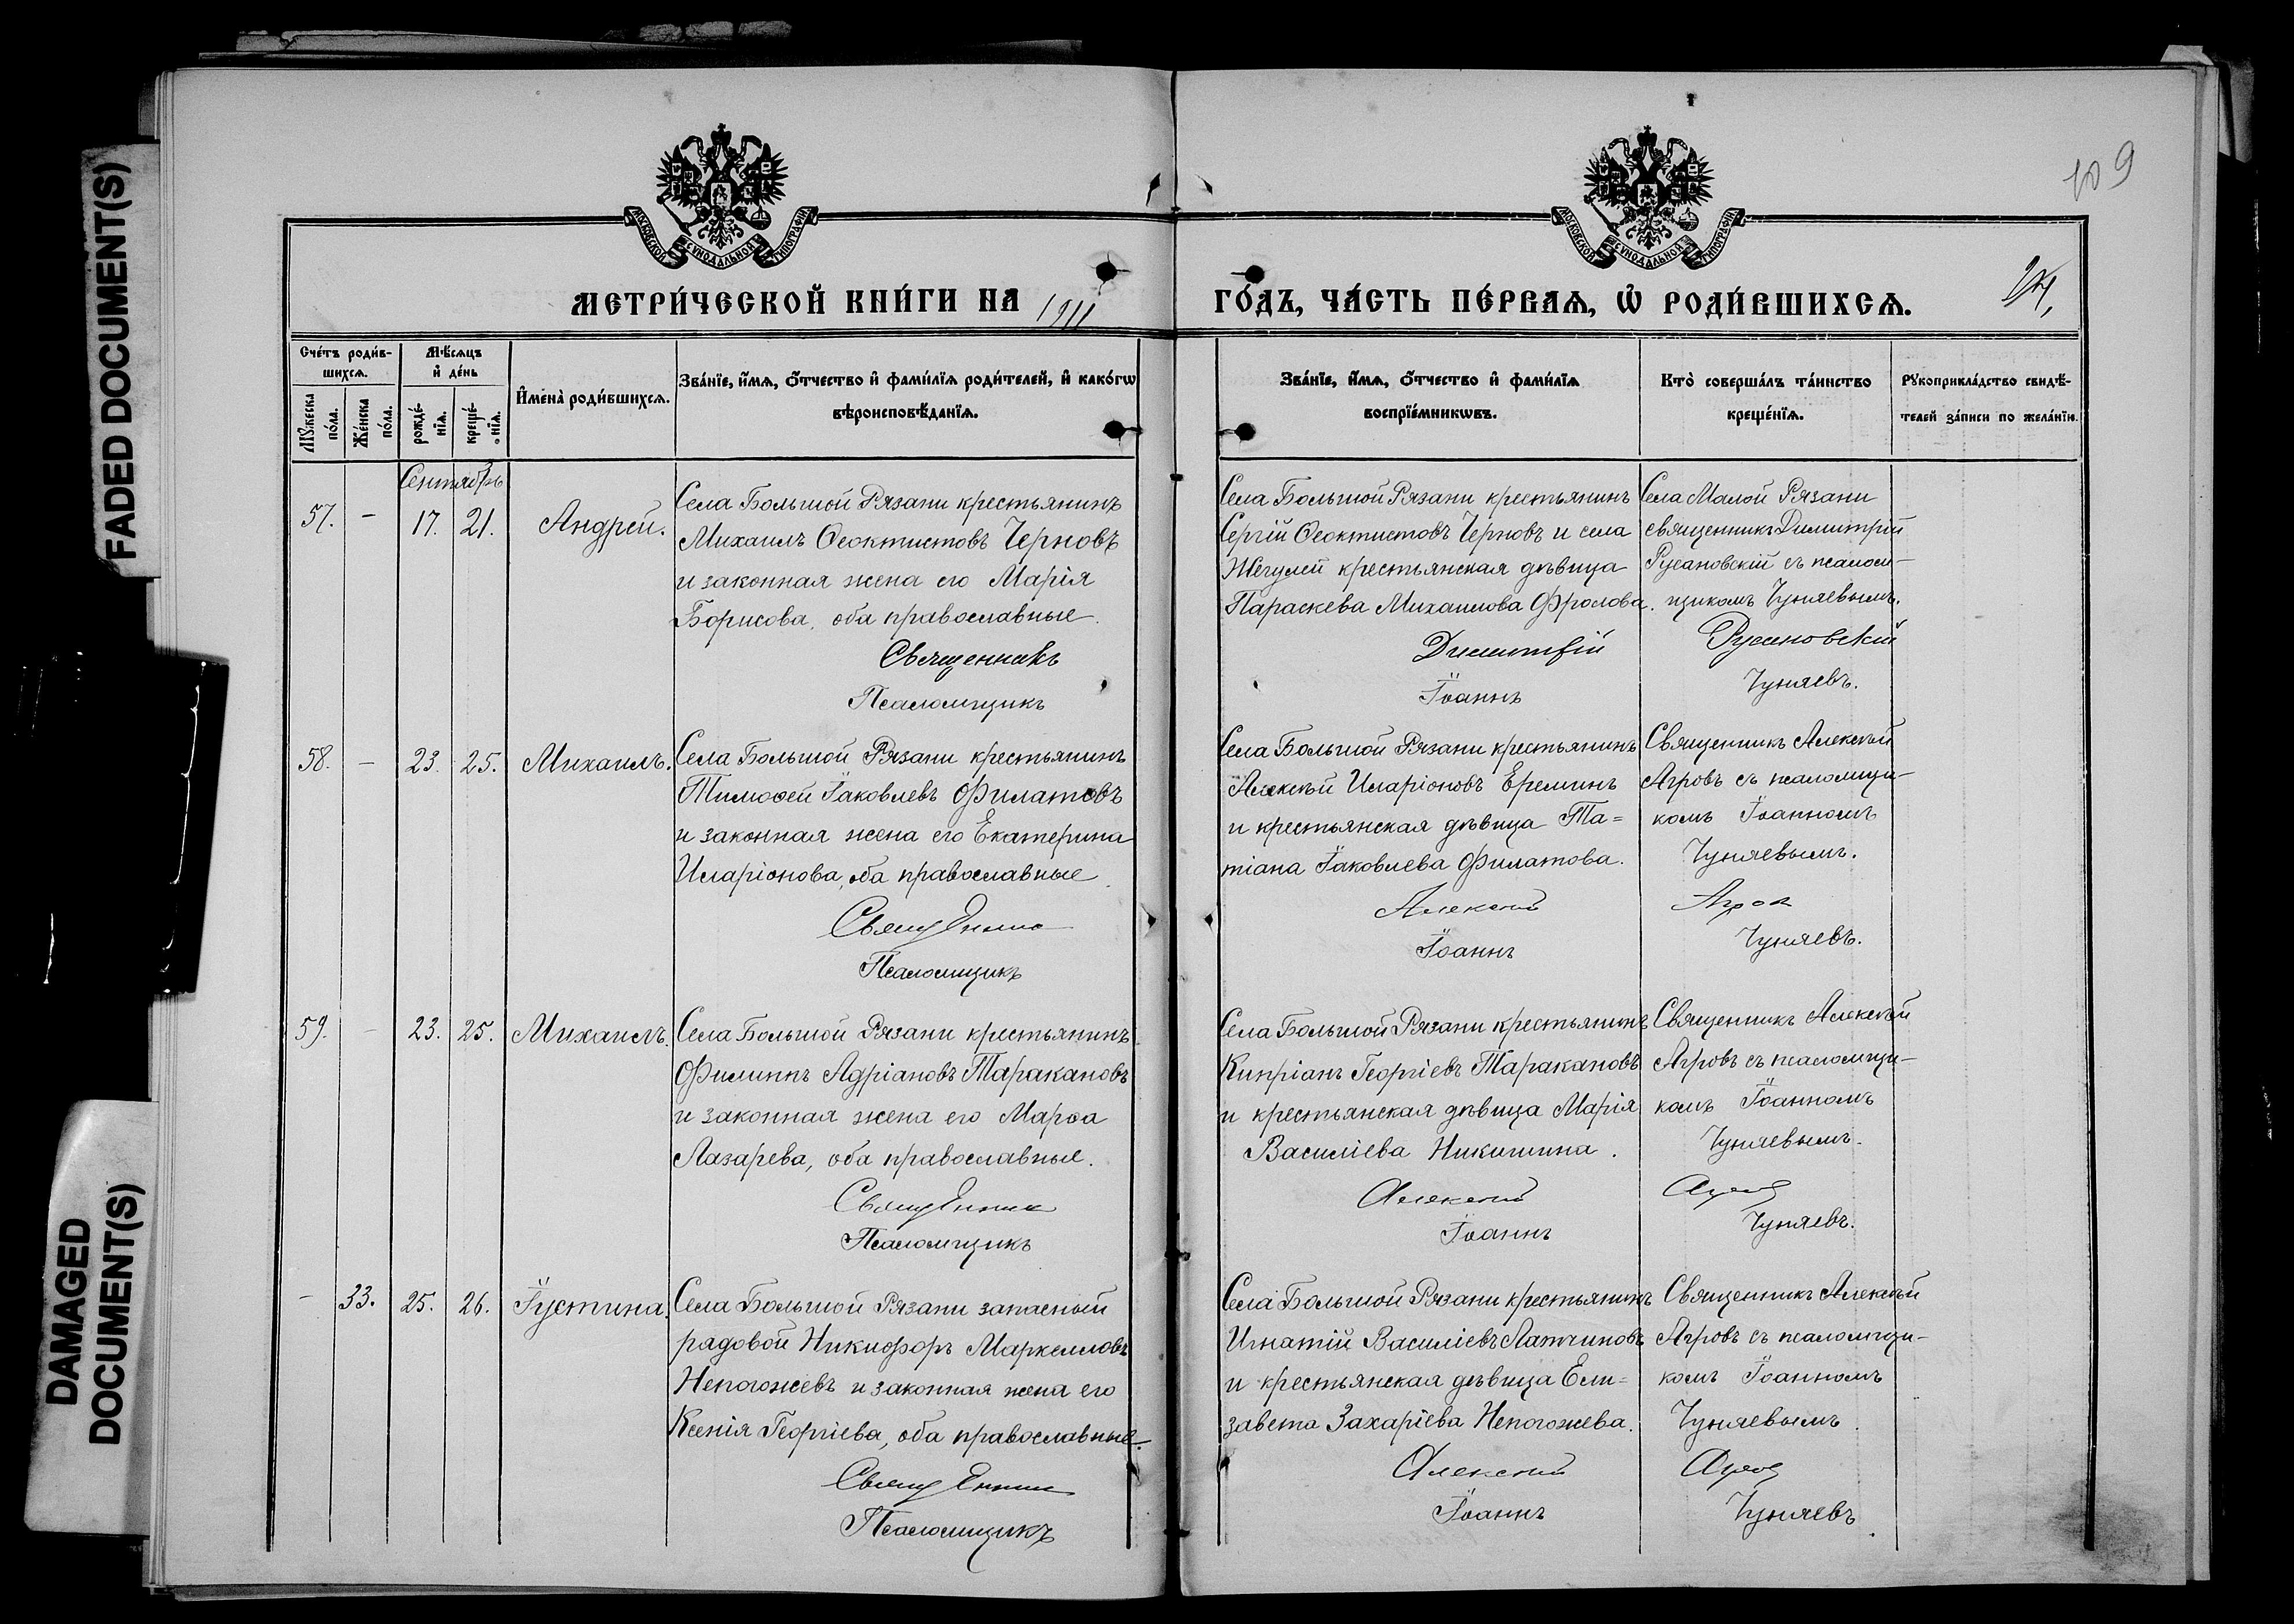 FADED DOCUMENT(S)
DAMAGED
DOCUMENT(S)
109
МОСКОВСКОЙ СѴНОДАЛЬНОЙ ТИПОГРАФІИ
МОСКОВСКОЙ СѴНОДАЛЬНОЙ ТИПОГРАФІИ
МЕТРИ́ЧЕСКОЙ КНИ́ГИ НА 1911 ГО́ДЪ, ЧА́СТЬ ПЕ́РВАѦ, Ѡ҆ РОДИ́ВШИХСѦ.
Сче́тъ роди́в-
шихсѧ.
Мꙋ́жеска
по́ла.
Же́нска
по́ла.
Мѣ́сѧцъ
и҆ де́нь
рожде́-
нїѧ.
креще́-
нїѧ.
И҆мена̀ роди́вшихсѧ.
Зва́нїе, и҆́мѧ, ѻ҆́тчество и҆ фами́лїѧ роди́телей, и҆ како́гѡ
вѣроисповѣ́данїѧ.
Зва́нїе, и҆́мѧ, ѻ҆́тчество и҆ фами́лїѧ
воспрїе́мникѡвъ.
Кто̀ соверша́лъ та́инство
креще́нїѧ.
Рꙋкоприкла́дство свидѣ́-
телей за́писи по жела́нїю.
Сентябрь
57. – 17. 21. Андрей.
Села Большой Рязани крестьянинъ
Михаилъ Ѳеоктистовъ Черновъ
и законная жена его Марія
Борисова, оба православные.
Священникъ
Псаломщикъ
Села Большой Рязани крестьянинъ
Сергій Ѳеоктистовъ Черновъ и села
Жегулей крестьянская дѣвица
Параскева Михаилова Фролова.
Димитрій
Іоаннъ
Села Малой Рязани
священникъ Димитрій
Русановскій съ псалом-
щикомъ Чуняевымъ.
Русановскій
Чуняевъ.
58. – 23. 25. Михаилъ.
Села Большой Рязани крестьянинъ
Тимоѳей Іаковлевъ Филатовъ
и законная жена его Екатерина
Иларіонова, оба православные.
Священникъ
Псаломщикъ
Села Большой Рязани крестьянинъ
Алексѣй Иларіоновъ Ереминъ
и крестьянская дѣвица Та=
тіана Іаковлева Филатова.
Алексѣй
Іоаннъ
Священникъ Алексѣй
Агровъ съ псаломщи-
комъ Іоанномъ
Чуняевымъ.
Агров
Чуняевъ.
59. – 23. 25. Михаилъ.
Села Большой Рязани крестьянинъ
Филиппъ Адріановъ Таракановъ
и законная жена его Марѳа
Лазарева, оба православные.
Священник
Псаломщикъ
Села Большой Рязани крестьянинъ
Кипріанъ Георгіевъ Таракановъ
и крестьянская дѣвица Марія
Василіева Никишина.
Алексѣй
Іоаннъ
Священникъ Алексѣй
Агровъ съ псаломщи-
комъ Іоанномъ
Чуняевымъ.
Агров
Чуняевъ.
– 33. 25. 26. Іустина.
Села Большой Рязани запасный
рядовой Никифоръ Маркелловъ
Непогожевъ и законная жена его
Ксенія Георгіева, оба православные.
Священник
Псаломщикъ
Села Большой Рязани крестьянинъ
Игнатій Василіевъ Латчиновъ
и крестьянская дѣвица Ели=
завета Захаріева Непогожева.
Алексѣй
Іоаннъ
Священникъ Алексѣй
Агровъ съ псаломщи-
комъ Іоанномъ
Чуняевымъ.
Агров
Чуняевъ.